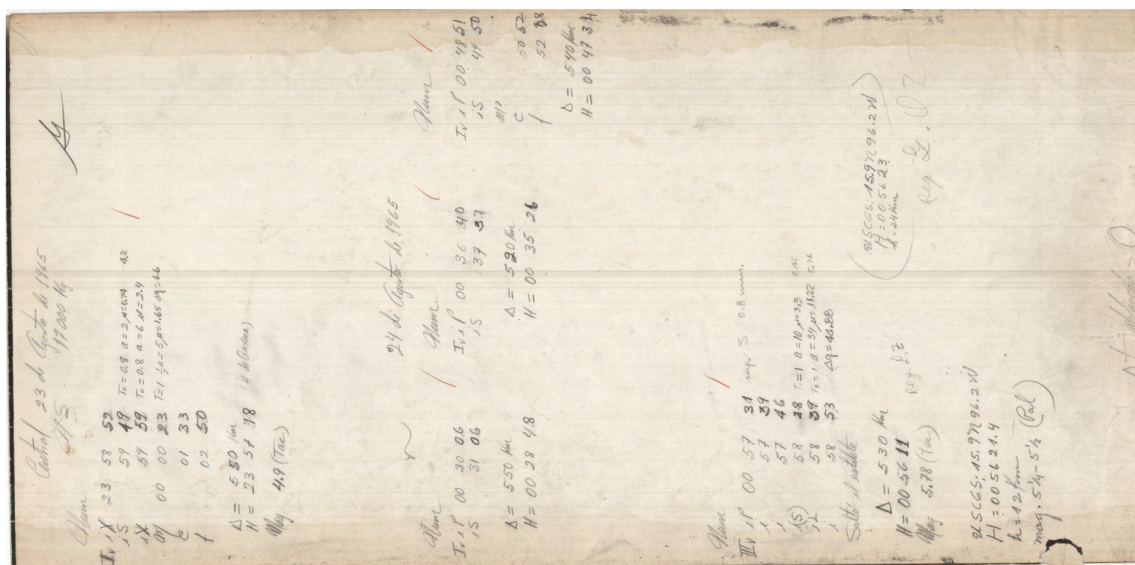 Central 23 de Agosto de 1965
17000 Kg
Núm
Iv iX 23 58 52
iS 59 49 To=0.8 a=2, μ=0.74
iX 59 59 To=0.8 a=6 μ=2.4
M 00 00 23
C 01 33
f 02 50
Δ = 550 Km
H = 23 57 38
Mag 4.9 (Tac)
24 de Agosto de 1965
Núm
Iv iP 00 30 06
iS 31 06
Δ = 550 Km
H = 00 28 48
Núm
Iv iP 00 36 40
iS 37 37
Δ = 520 Km
H = 00 35 26
Núm
Iv iP 00 48 51
iS 49 50
M?
C 50 52
f
Δ = 540 Km
H = 00 47 34
Núm
III iP 00 57 31 imp. S 0.8 mm.
i 57 39
i 57 46
(S) 58 28 To=1 a=10 μ=3.3
iL 58 39
i 58 53
Salto el estilete
Δ = 530 Km
H = 00 56 11
Mag 5.78 (Tac)
Reg. L.Z
USCGS. 15.9N 96.2W
H = 00 56 21.4
h = 12 Km
mag. 5¼ - 5½ (Pal)
(USCGS. 15.9N 96.2W
H = 00 56 23
h = 24 Km)
Reg. L. Z